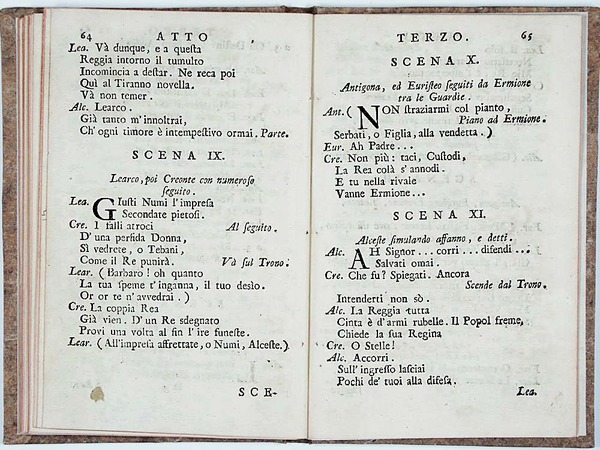 64 ATTO
Lea. Và dunque, e a questa
Reggia intorno il tumulto
Incomincia a destar. Ne reca poi
Quì al Tiranno novella.
Và non temer.
Alc. Learco.
Già tanto m'innoltrai,
Ch'ogni timore è intempestivo ormai. Parte.
SCENA IX.
Learco, poi Creonte con numeroso
seguito.
Lea. GIusti Numi l'impresa
Secondate pietosi.
Cre. I falli atroci Al seguito.
D'una perfida Donna,
Sì vedrete, o Tebani,
Come il Re punirà. Và sul Trono.
Lear. (Barbaro! oh quanto
La tua speme t'inganna, il tuo desìo.
Or or te n'avvedrai.)
Cre. La coppia Rea
Già vien. D'un Re sdegnato
Provi una volta al fin l'ire funeste.
Lear. (All'impresa affrettate, o Numi, Alceste.)
SCE-
TERZO. 65
SCENA X.
Antigona, ed Euristeo seguiti da Ermione
tra le Guardie.
Ant. (NON straziarmi col pianto,
Piano ad Ermione.
Serbati, o Figlia, alla vendetta.)
Eur. Ah Padre...
Cre. Non più: taci, Custodi,
La Rea colà s'annodi.
E tu nella rivale
Vanne Ermione...
SCENA XI.
Alceste simulando affanno, e detti.
Alc. AH Signor... corri... difendi...
Salvati omai.
Cre. Che fu? Spiegati. Ancora
Scende dal Trono.
Intenderti non sò.
Alc. La Reggia tutta
Cinta è d'armi rubelle. Il Popol freme,
Chiede la sua Regina
Cre. O Stelle!
Alc. Accorri.
Sull'ingresso lasciai
Pochi de' tuoi alla difesa.
Lea.